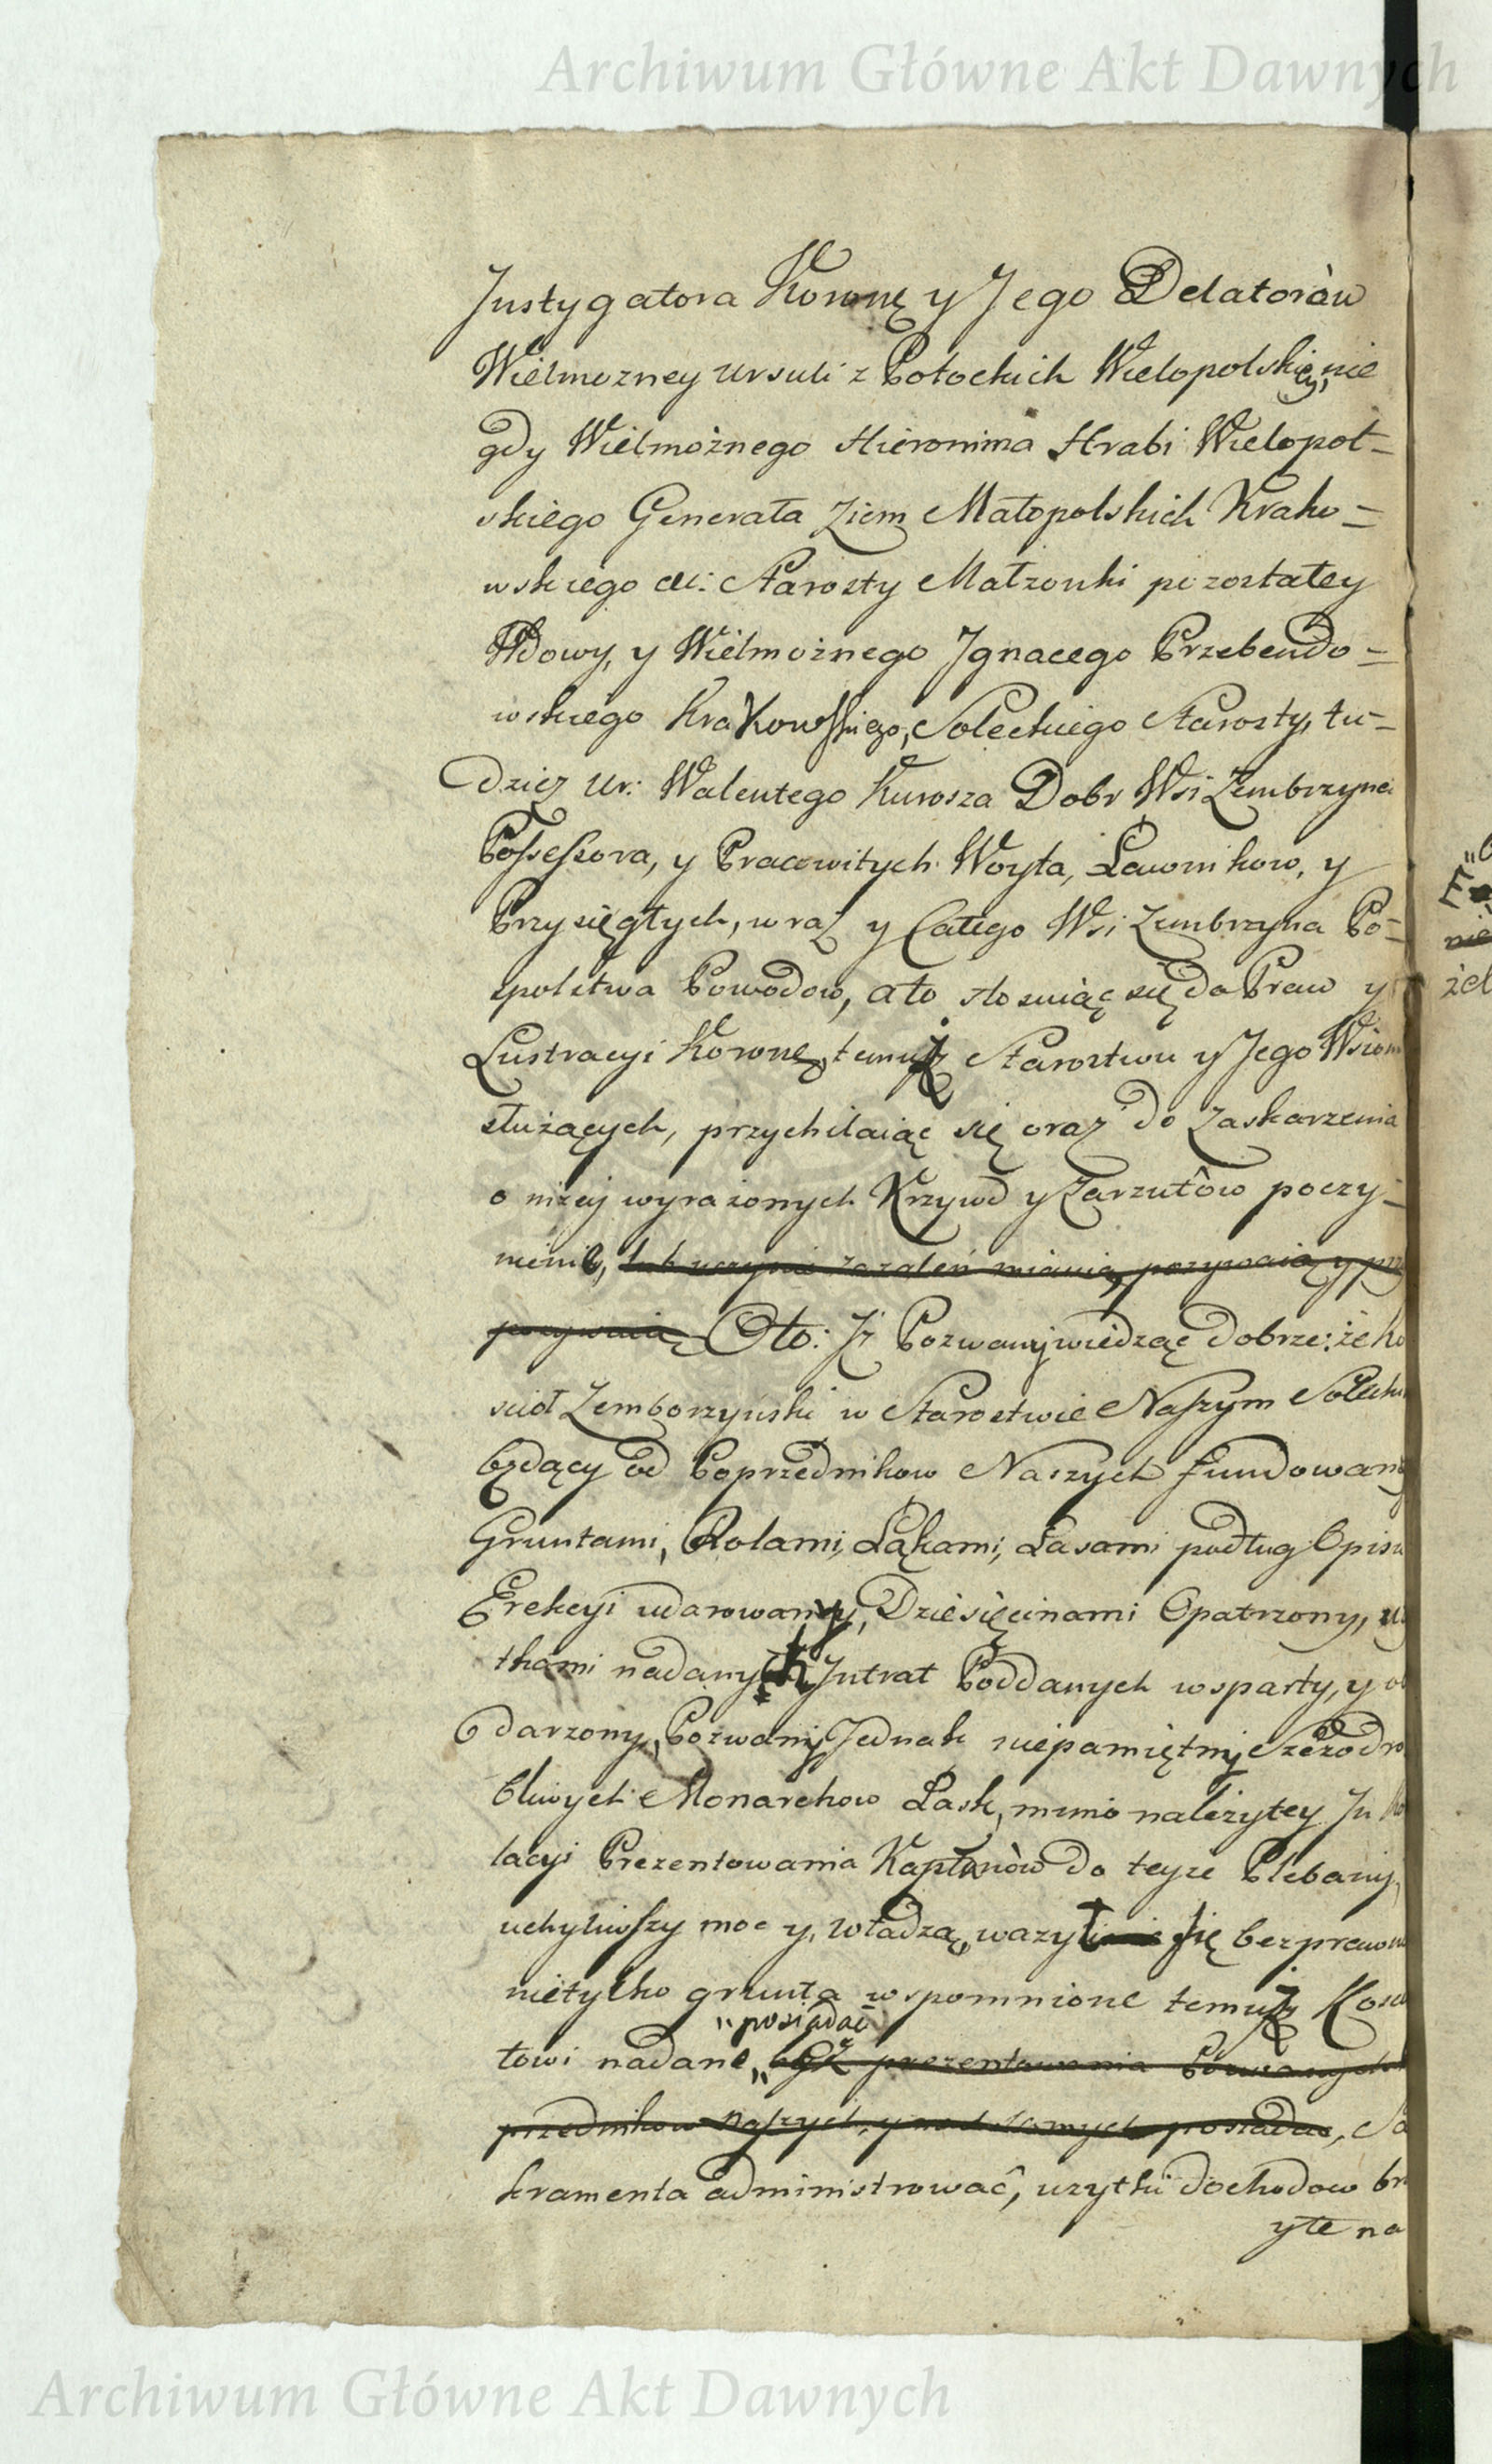 Archiwum Główne Akt Dawnych
Instygatora Koronę y Jego Delatorów
Wielmozney Ursuli z Potockich Wielopolskiey, nie
gdy Wielmożnego Hieronima Hrabi Wielopol=
skiego Generała Ziem Małopolskich Krako=
wskiego etc: Starosty Małzonki pozostałey
Wdowy, y Wielmożnego Ignacego Przebendo=
wskiego Krakowskiego, Soleckiego Starosty, tu=
dziez Ur: Walentego Kurosza Dobr Wsi Zembrzyna
Possessora, y Pracowitych Woyta, Ławnikow, y
Przysięgłych, wraz y Całego Wsi Zembrzyna Po=
spolstwa Powodow, ato stosuiąc się do Praw y
Lustracyi Koronę, temuż Starostwu y Jego Wsiom
służących, przychilaiąc się oraz do Zaskarzenia
o niżej wyrażonych Krzywd y Zarzutôw poczy=
nienie, lub uczynić zażaleń mianią, pozywaią y prz
pozywaią Oto: Iż Pozwany wiedząc dobrze: że Ko
sciół Zemborzyński w Starostwie Naszym Solecki
będący od Poprzednikow Naszych fundowany
Gruntami, Rolami, Łąkami, Lasami podług Opisu
Erekcyi udarowany, Dziesięcinami Opatrzony, uż
tkami nadanych Intrat Poddanych wsparty, y ob
darzony, Pozwany Jednak niepamiętny Szczodro
bliwych Monarchow Łask, mimo należytey In ko
lacyi Prezentowania Kapłanów do teyze Plebanij,
uchyliwszy moc y, władzą, wazył się bezprawni
nietylko grunta wspomnione temuż Kości
"posiadać
łowi nadane, " bez prezentowania Pozwanych
przednikow naszych, y nad samych posiadać, Sa
kramenta administrować, uzytki dochodow br
yte na
E"
nie
żel
Archiwum Główne Akt Dawnych